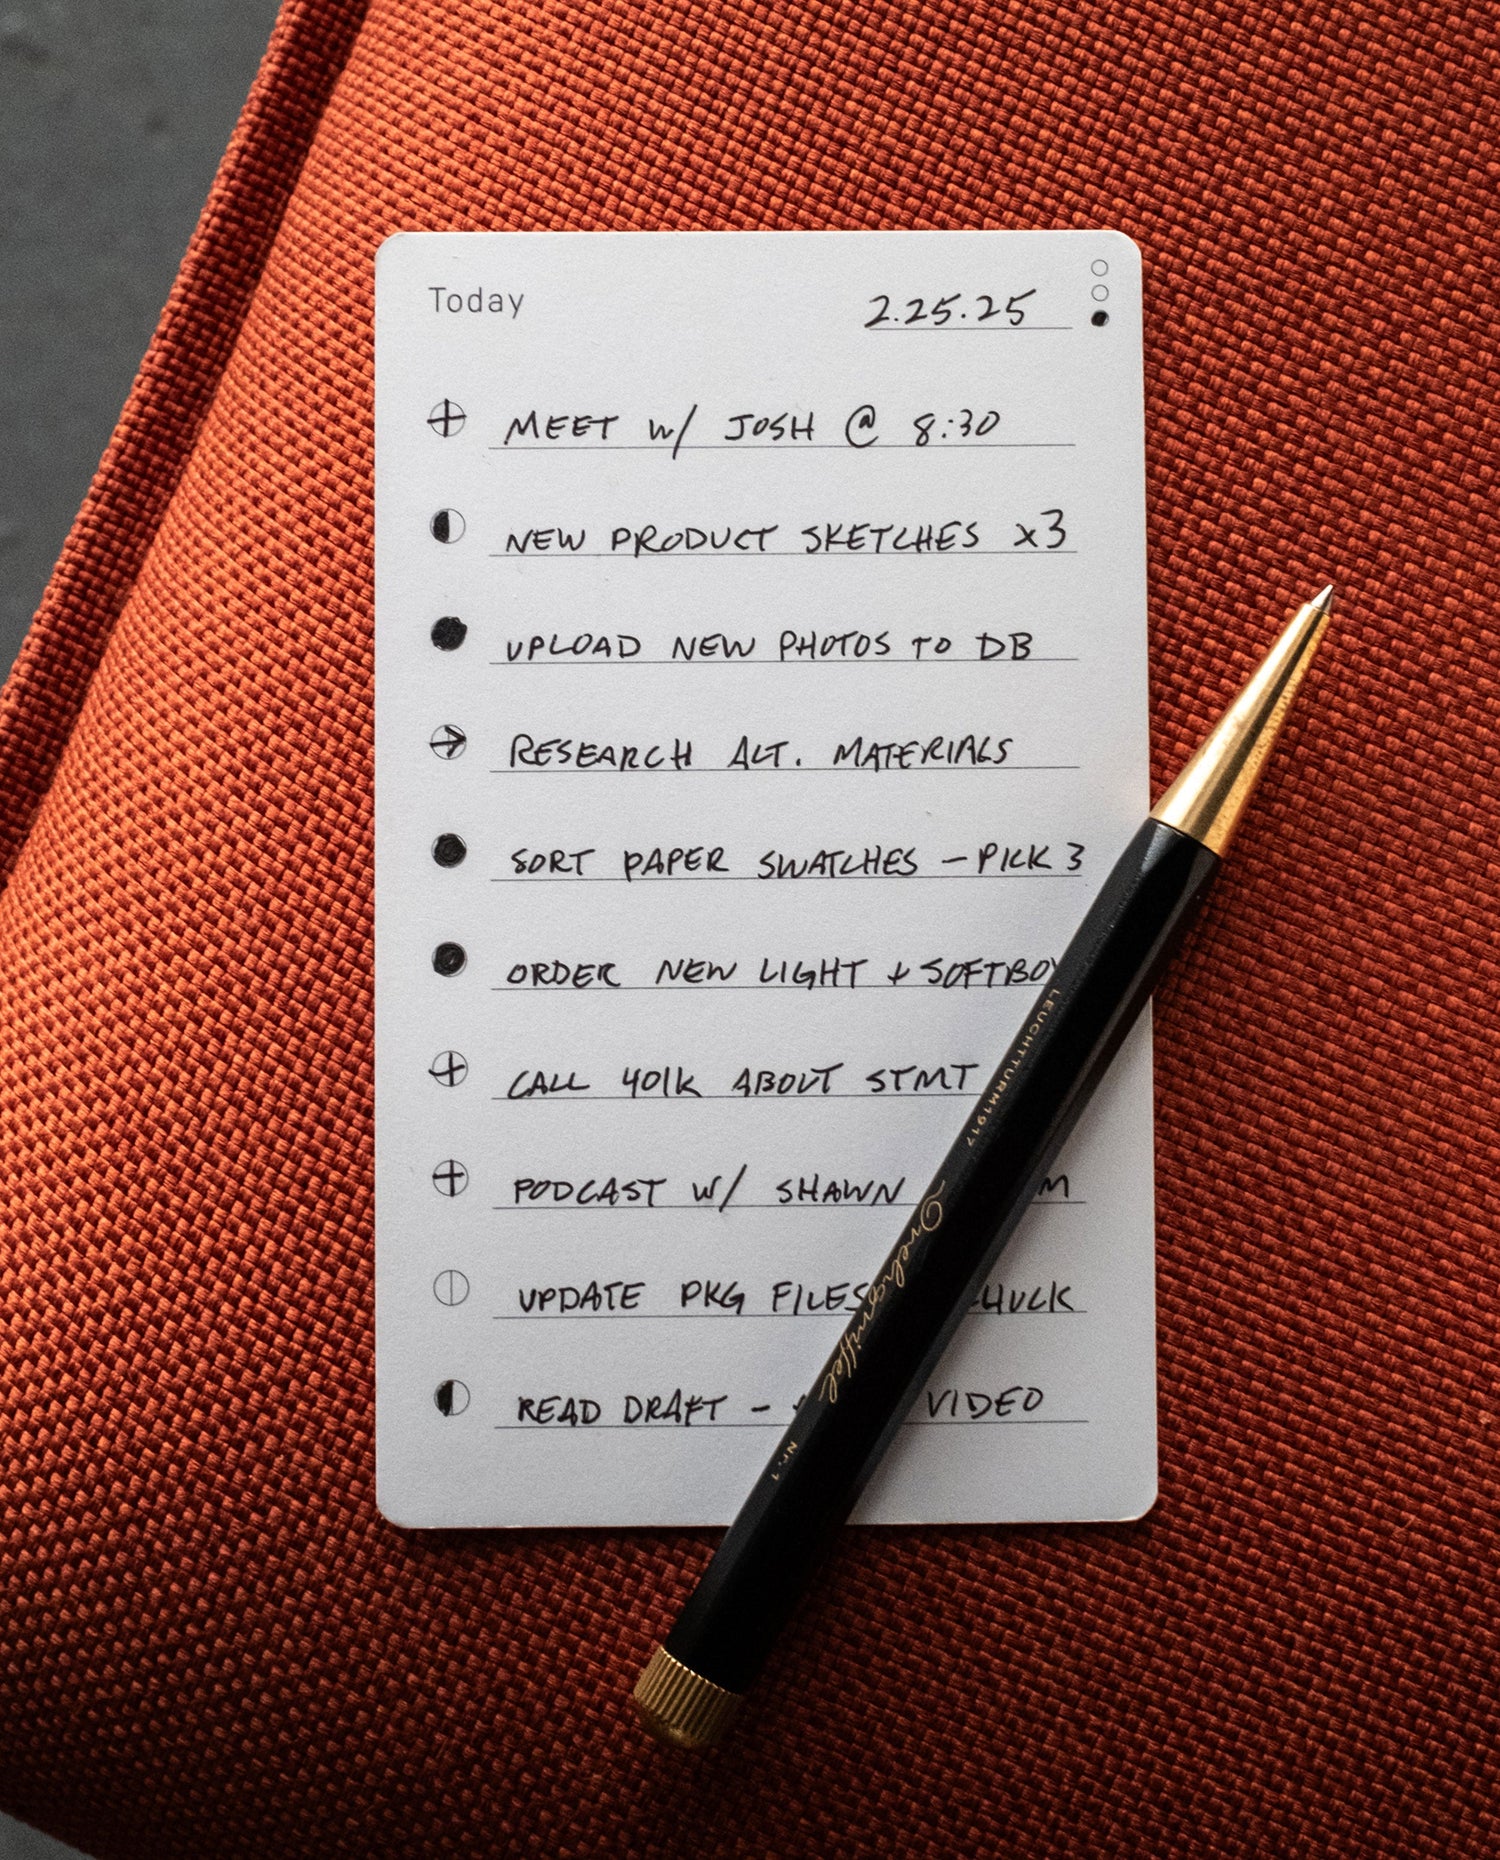 Today
2.25.25
MEET W/ JOSH @ 8:30
NEW PRODUCT SKETCHES x3
UPLOAD NEW PHOTOS TO DB
RESEARCH ALT. MATERIALS
SORT PAPER SWATCHES – PICK 3
ORDER NEW LIGHT + SOFTBOX
CALL 401K ABOUT STMT
PODCAST W/ SHAWN
UPDATE PKG FILES CHUCK
READ DRAFT – VIDEO
LEUCHTTURM1917
Drehgriffel
Nr. 1